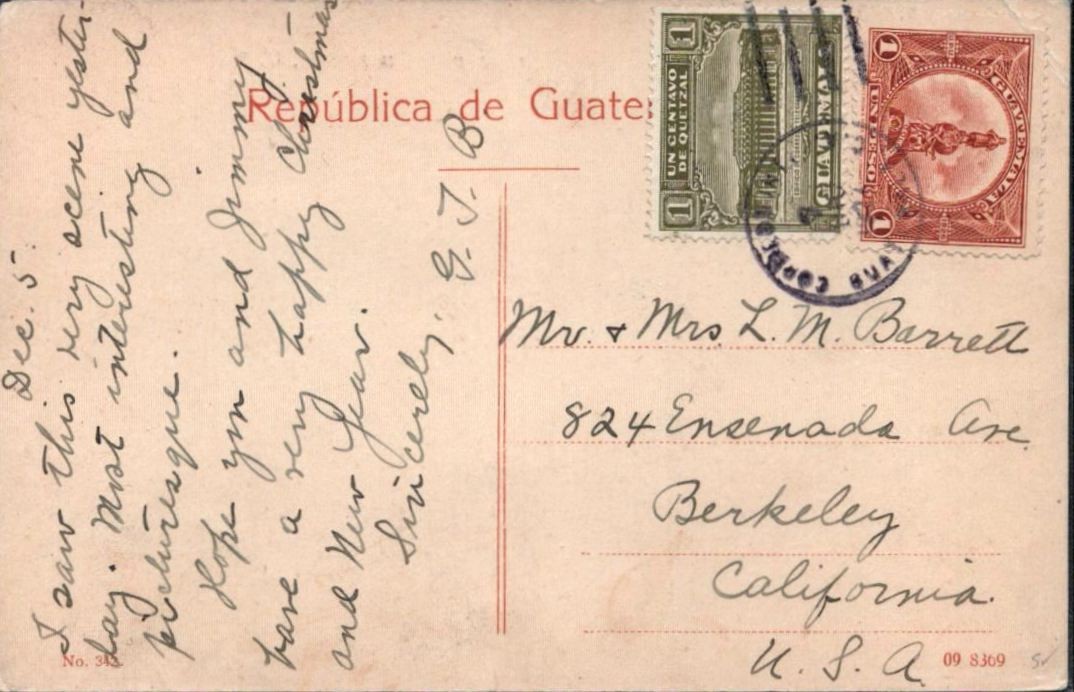 República de Guate
Dec. 5.
I saw this very scene yester-
day. Most interesting and
picturesque.
Hope you and Jimmy
have a very happy Christmas
and New Year.
Sincerely,
G. T. B
1
UN CENTAVO
DE QUETZAL
1
GUATEMALA
1
UN PESO
1
GUATEMALA
Mr. & Mrs L. M. Barrett
824 Ensenada Ave.
Berkeley
California.
U. S. A.
No. 343.
09 8369